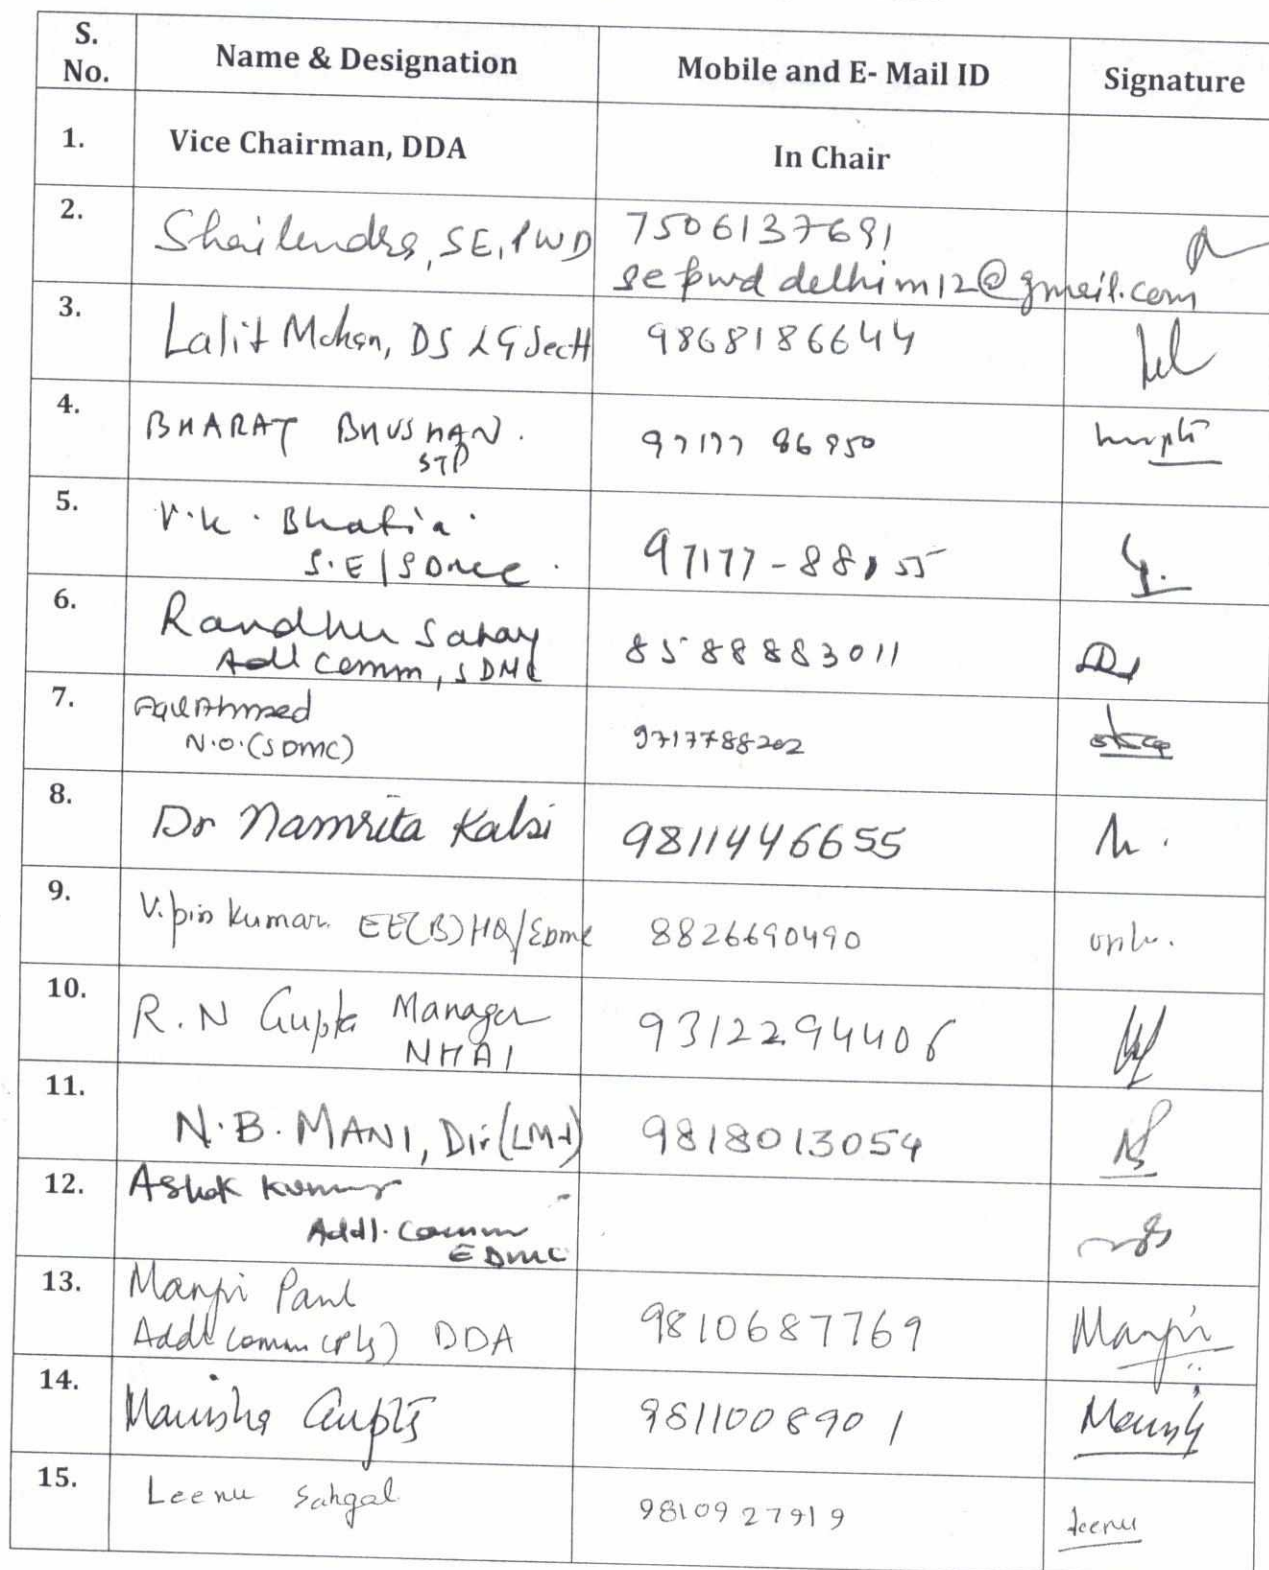 S. No. Name & Designation Mobile and E- Mail ID Signature
1. Vice Chairman, DDA In Chair
2. Shailendra, SE, PWD 7506137691
sepwddelhim12@gmail.com
3. Lalit Mohan, DS LG Sectt 9868186644
4. BHARAT BHUSHAN. 97177 86950
STP
5. V.K. Bhatia
S.E/SDMC. 97177-88155
6. Randhir Sahay
Addl Comm, SDMC 8588883011
7. Aqil Ahmed
N.O.(SDMC) 9717788202
8. Dr Namrita Kalsi 9811446655
9. Vipin Kumar. EE(B)HQ/EDMC 8826690490
10. R.N Gupta Manager 9312294406
NHAI
11. N.B. MANI, Dir(LM-I) 9818013054
12. Ashok Kumar
Addl. Comm
EDMC
13. Manju Paul Manju
Addl Comm (Plg) DDA 9810687769
14. Manisha Gupta 9811008901
15. Leenu Sahgal 9810927919 Leenu